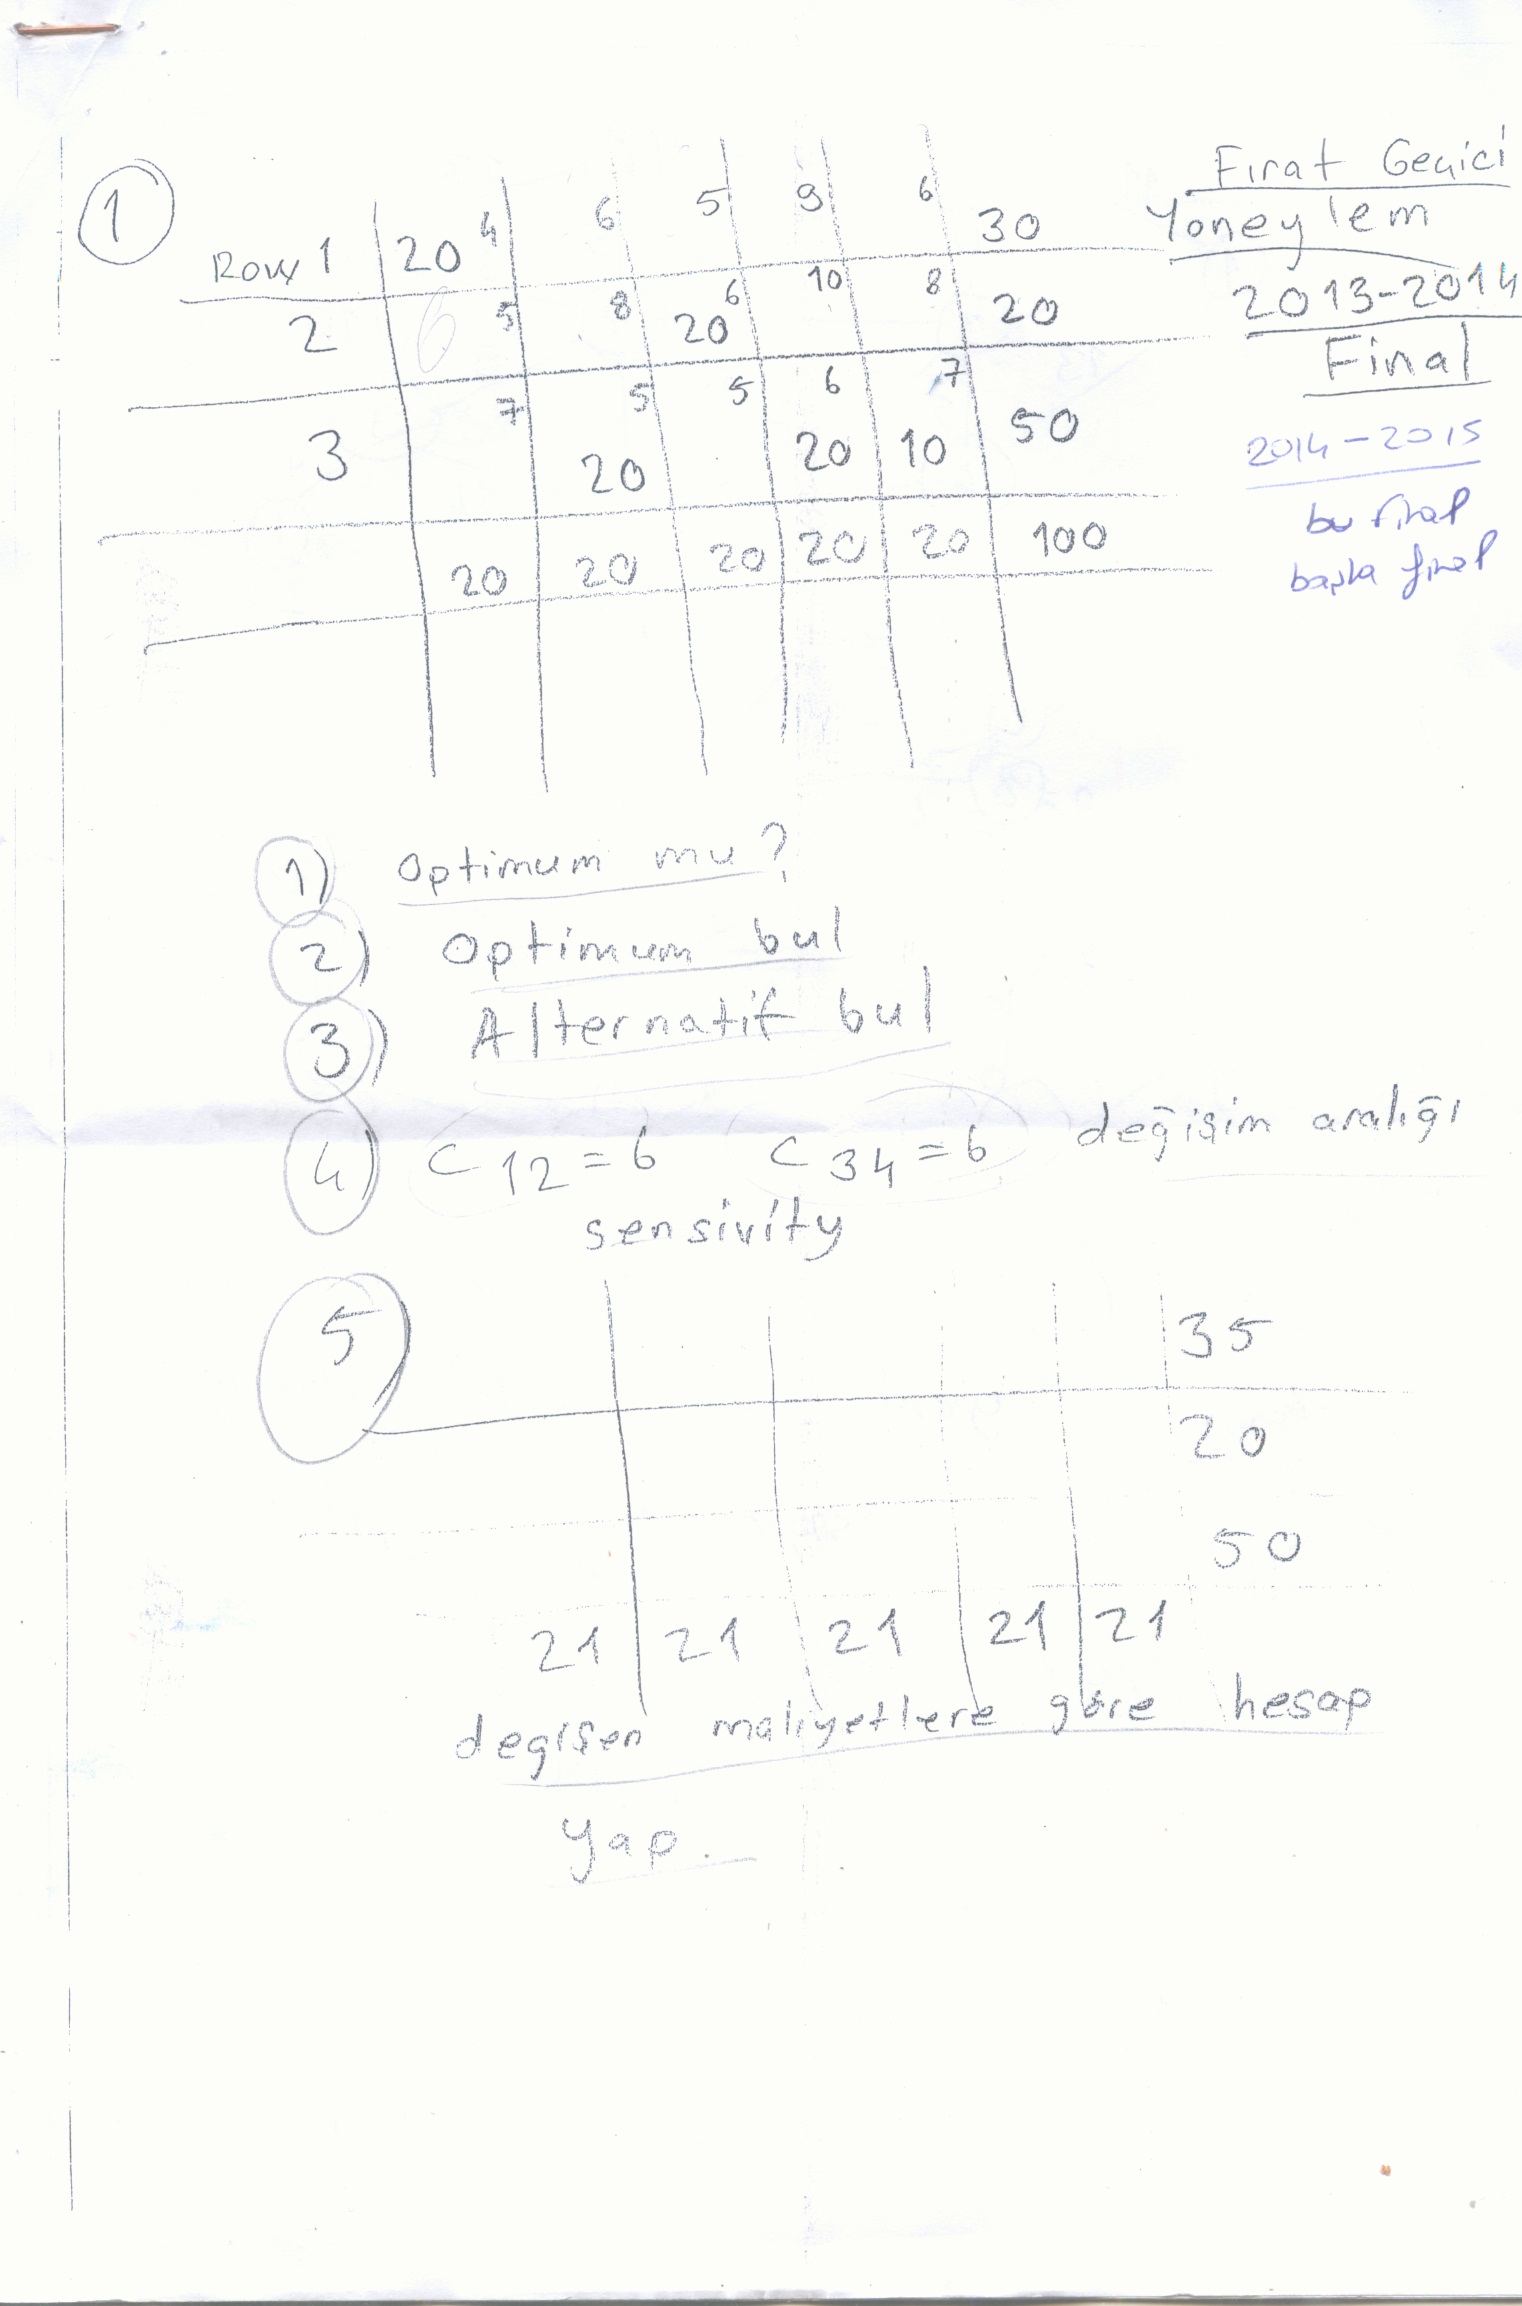 1
Fırat Geçici
Yoneylem
2013-2014
Final
2014-2015
bu final
başka final
Row 1 20 4 6 5 9 6 30
2 6 5 8 20 6 10 8 20
3 7 5 20 5 6 20 7 10 50
20 20 20 20 20 100
1) Optimum mu?
2) Optimum bul
3) Alternatif bul
4) C12=6 C34=6 değişim aralığı
sensivity
5) 35
20
50
21 21 21 21 21
degişen maliyetlere göre hesap
yap.